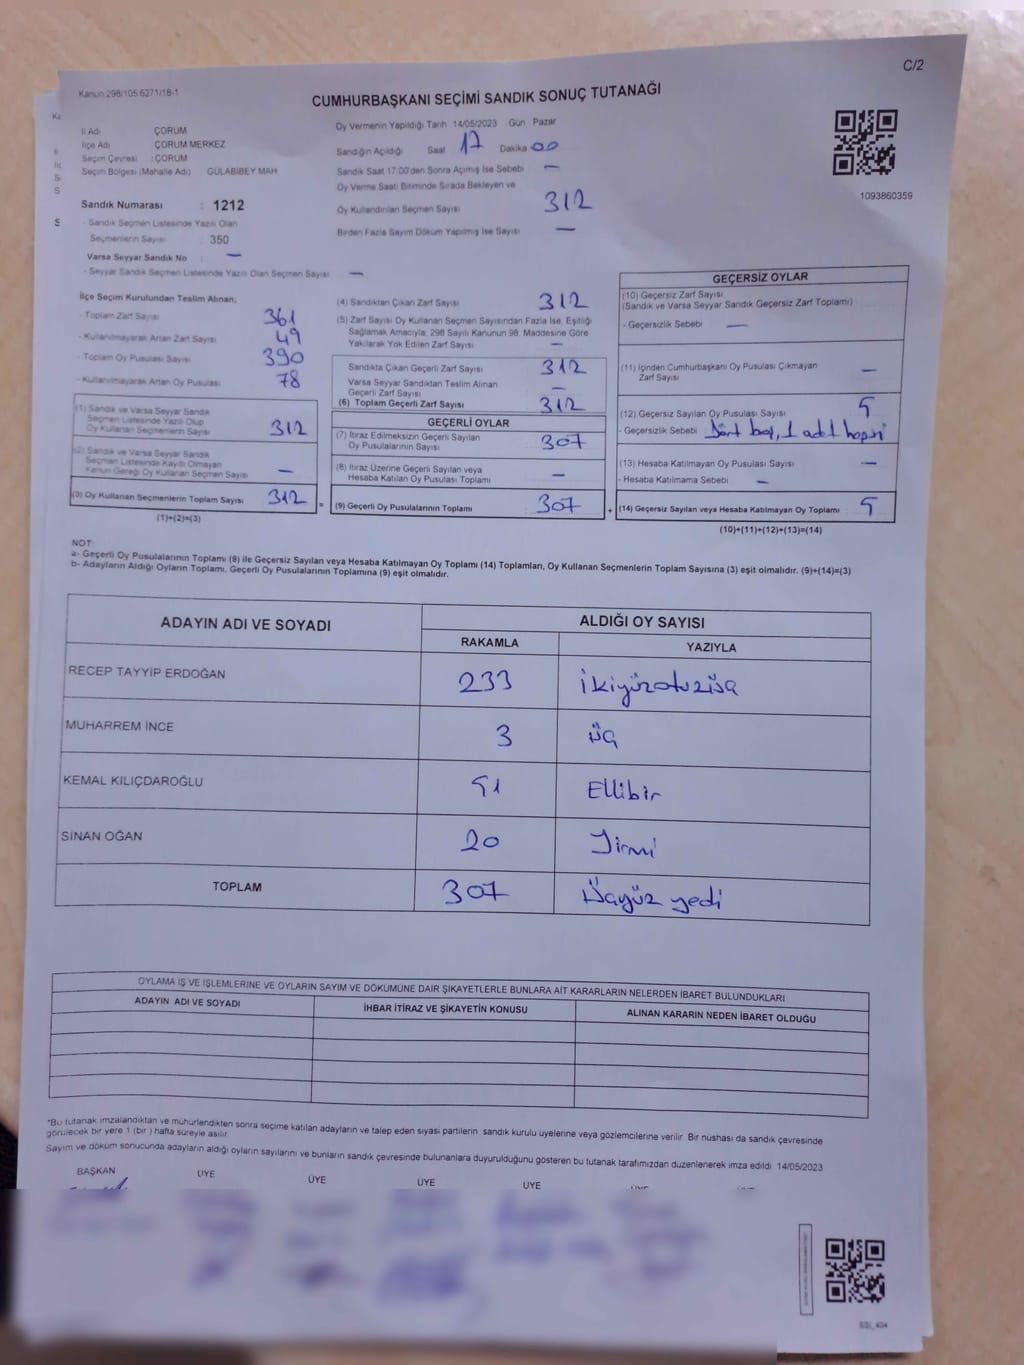 C/2
Kanun 298/105 6271/18-1
CUMHURBAŞKANI SEÇİMİ SANDIK SONUÇ TUTANAĞI
İl Adı ÇORUM
İlçe Adı ÇORUM MERKEZ
Seçim Çevresi : ÇORUM
Seçim Bölgesi (Mahalle Adı) GÜLABİBEY MAH
Sandık Numarası : 1212
- Sandık Seçmen Listesinde Yazılı Olan
Seçmenlerin Sayısı : 350
Varsa Seyyar Sandık No : —
- Seyyar Sandık Seçmen Listesinde Yazılı Olan Seçmen Sayısı : —
Oy Vermenin Yapıldığı Tarih 14/05/2023 Gün Pazar
Sandığın Açıldığı Saat 17 Dakika 00
Sandık Saat 17:00'den Sonra Açımış İse Sebebi —
Oy Verme Saati Bitiminde Sırada Bekleyen ve
Oy Kullandırılan Seçmen Sayısı 312
Birden Fazla Sayım Döküm Yapılmış İse Sayısı —
1093860359
İlçe Seçim Kurulundan Teslim Alınan;
- Toplam Zarf Sayısı 361
- Kullanılmayarak Artan Zarf Sayısı 49
- Toplam Oy Pusulası Sayısı 390
- Kullanılmayarak Artan Oy Pusulası 78
(1) Sandık ve Varsa Seyyar Sandık
Seçmen Listesinde Yazılı Olup
Oy Kullanan Seçmenlerin Sayısı 312
(2) Sandık ve Varsa Seyyar Sandık
Seçmen Listesinde Kayıtlı Olmayan
Kanun Gereği Oy Kullanan Seçmen Sayısı —
(3) Oy Kullanan Seçmenlerin Toplam Sayısı 312
(1)+(2)=(3)
(4) Sandıktan Çıkan Zarf Sayısı 312
(5) Zarf Sayısı Oy Kullanan Seçmen Sayısından Fazla İse, Eşitliği
Sağlamak Amacıyla, 298 Sayılı Kanunun 98. Maddesine Göre
Yakılarak Yok Edilen Zarf Sayısı —
Sandıkta Çıkan Geçerli Zarf Sayısı 312
Varsa Seyyar Sandıktan Teslim Alınan
Geçerli Zarf Sayısı —
(6) Toplam Geçerli Zarf Sayısı 312
GEÇERLİ OYLAR
(7) İtiraz Edilmeksizin Geçerli Sayılan
Oy Pusulalarının Sayısı 307
(8) İtiraz Üzerine Geçerli Sayılan veya
Hesaba Katılan Oy Pusulası Toplamı —
= (9) Geçerli Oy Pusulalarının Toplamı 307
GEÇERSİZ OYLAR
(10) Geçersiz Zarf Sayısı
(Sandık ve Varsa Seyyar Sandık Geçersiz Zarf Toplamı)
- Geçersizlik Sebebi —
(11) İçinden Cumhurbaşkanı Oy Pusulası Çıkmayan
Zarf Sayısı —
(12) Geçersiz Sayılan Oy Pusulası Sayısı 5
- Geçersizlik Sebebi Dört boş, 1 adet hepsi
(13) Hesaba Katılmayan Oy Pusulası Sayısı —
- Hesaba Katılmama Sebebi —
+ (14) Geçersiz Sayılan veya Hesaba Katılmayan Oy Toplamı 5
(10)+(11)+(12)+(13)=(14)
NOT:
a- Geçerli Oy Pusulalarının Toplamı (9) ile Geçersiz Sayılan veya Hesaba Katılmayan Oy Toplamı (14) Toplamları, Oy Kullanan Seçmenlerin Toplam Sayısına (3) eşit olmalıdır. (9)+(14)=(3)
b- Adayların Aldığı Oyların Toplamı, Geçerli Oy Pusulalarının Toplamına (9) eşit olmalıdır.
ADAYIN ADI VE SOYADI ALDIĞI OY SAYISI
RAKAMLA YAZIYLA
RECEP TAYYİP ERDOĞAN 233 ikiyüzotuzüç
MUHARREM İNCE 3 üç
KEMAL KILIÇDAROĞLU 51 Ellibir
SİNAN OĞAN 20 Yirmi
TOPLAM 307 Üçyüz yedi
OYLAMA İŞ VE İŞLEMLERİNE VE OYLARIN SAYIM VE DÖKÜMÜNE DAİR ŞİKAYETLERLE BUNLARA AİT KARARLARIN NELERDEN İBARET BULUNDUKLARI
ADAYIN ADI VE SOYADI İHBAR İTİRAZ VE ŞİKAYETİN KONUSU ALINAN KARARIN NEDEN İBARET OLDUĞU
*Bu tutanak imzalandıktan ve mühürlendikten sonra seçime katılan adayların ve talep eden siyasi partilerin sandık kurulu üyelerine veya gözlemcilerine verilir. Bir nüshası da sandık çevresinde
görülecek bir yere 1 (bir) hafta süreyle asılır.
Sayım ve döküm sonucunda adayların aldığı oyların sayılarını ve bunların sandık çevresinde bulunanlara duyurulduğunu gösteren bu tutanak tarafımızdan düzenlenerek imza edildi. 14/05/2023
BAŞKAN ÜYE ÜYE ÜYE ÜYE